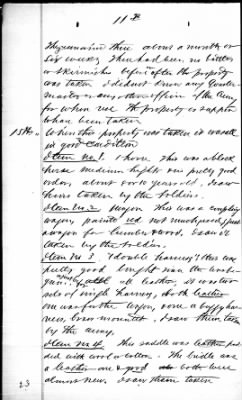 11th
They remained there about a month or
six weeks. There had been no battles
or skirmishes before or after the property
was taken I did not know any Quarter
master or any other officer of the Army
for whose use the property is supposed
to have been taken
15th. When this property was taken it was all
in good condition
Item no. 1. 1 horse. This was a black
horse medium height in pretty good
order, about 6 or 7 years old, I saw
him taken by the soldiers.
Item No. 2 wagon. This was a complete
wagon, painted red not much used, just
a wagon for lumber, I saw it
taken by the soldiers.
Item No. 3. (double harness) this was
pretty good bought near the
all leather, it was two
sets of single harness, both leather
one was for the wagon, one a buggy harness
brass mounted, I saw them taken
by the army.
Item no. 4. This saddle was leather padded
with wool or cotton. The bridle was
a leather one & good both were
almost new. I saw them taken
23